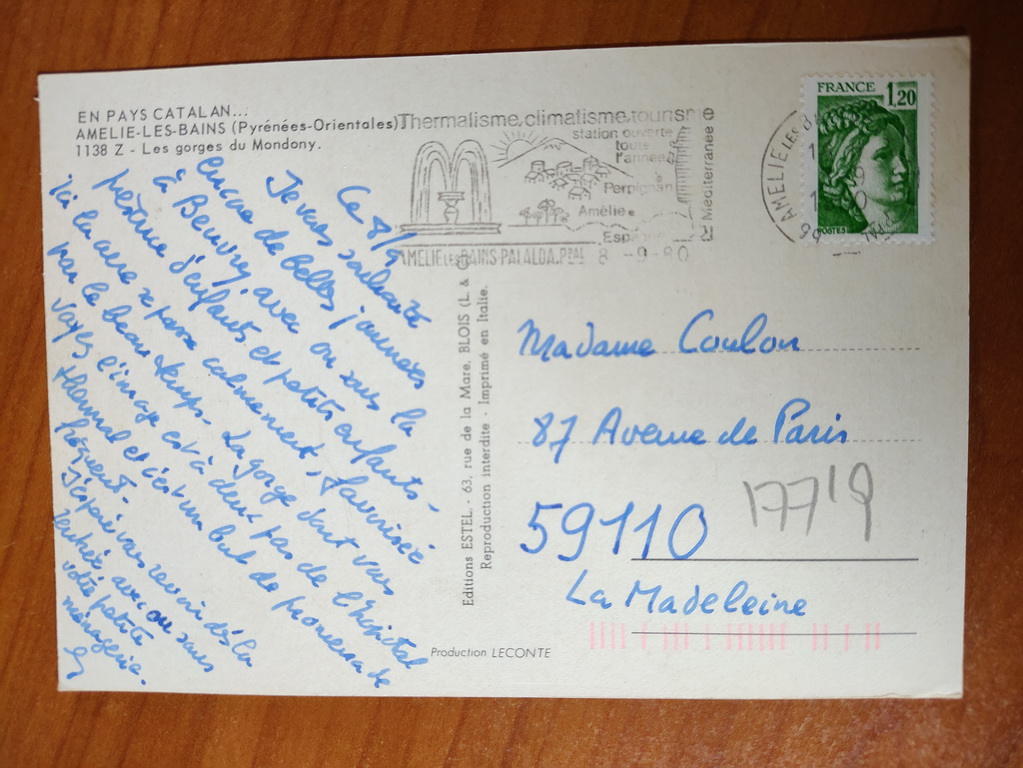 EN PAYS CATALAN...
AMELIE-LES-BAINS (Pyrénées-Orientales)
1138 Z - Les gorges du Mondony.
Ce 8/9
Je vous souhaite
encore de belles journées
à Beuvry, avec ou sans la
présence d'enfants et petits enfants.
Ici la cure se passe calmement, favorisée
par le beau temps. La gorge dont vous
voyez l'image est à deux pas de l'hôpital
thermal et c'est un but de promenade
fréquent.
J'espère vous revoir dès la
rentrée avec ou sans
votre petite
ménagerie.
Thermalisme, climatisme, tourisme
station ouverte
toute
l'année
Perpignan
Amélie
Espagne
Méditerranée
AMELIE LES BAINS-PALALDA. P.OAL 8 -9-80
AMELIE LES BA
66
FRANCE 1,20
POSTES
Editions ESTEL. - 63, rue de la Mare, BLOIS (L. & C
Reproduction interdite - Imprimé en Italie.
Madame Coulon
87 Avenue de Paris
17719
59110
La Madeleine
Production LECONTE